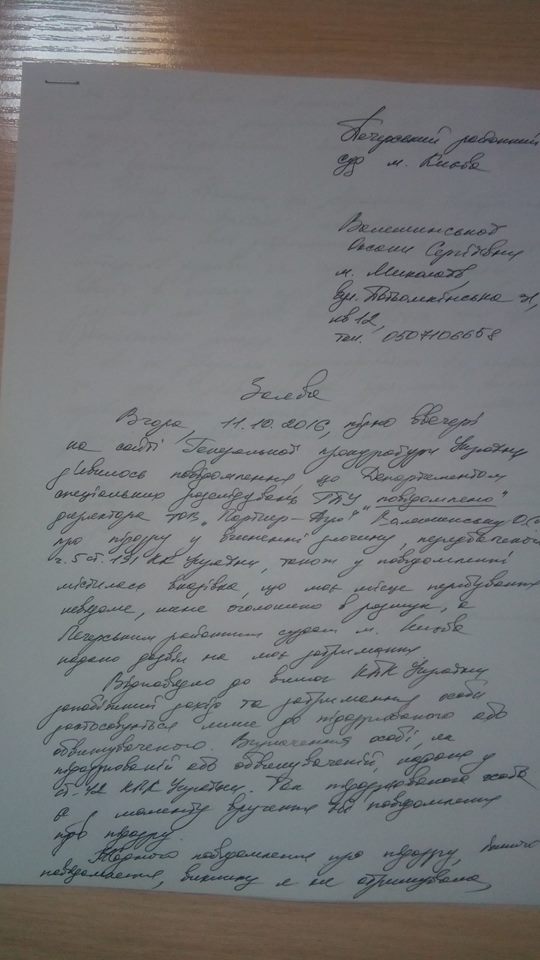 Печерський районний
суд м. Києва
Валешинської
Оксани Сергіївни
м. Миколаїв,
вул. Потьомкінська
кв 12,
тел. 0507106658
Заява
Вчора, 11.10.2016, пізно ввечері
на сайті Генеральної прокуратури України
з'явилось повідомлення, що Департаментом
спеціальних розслідувань ГПУ "повідомлено"
директора ТОВ "Партнер-Агро" Валешинську О.С.
про підозру у вчиненні злочину, передбаченого
ч.5 ст. 191 КК України, також у повідомленні
містилась вказівка, що моє місце перебування
невідоме, мене оголошено в розшук, а
Печерським районним судом м. Києва
надано дозвіл на моє затримання.
Відповідно до вимог КПК України
запобіжний захід та затримання особи
застосовується лише до підозрюваного або
обвинуваченого. Визначення особі, як
підозрюваній або обвинуваченій, надано у
ст. 42 КПК України. Так підозрюваною особа
є з моменту вручення їй повідомлення
про підозру.
Жодного повідомлення про підозру,
повідомлення, виклику я не отримувала,